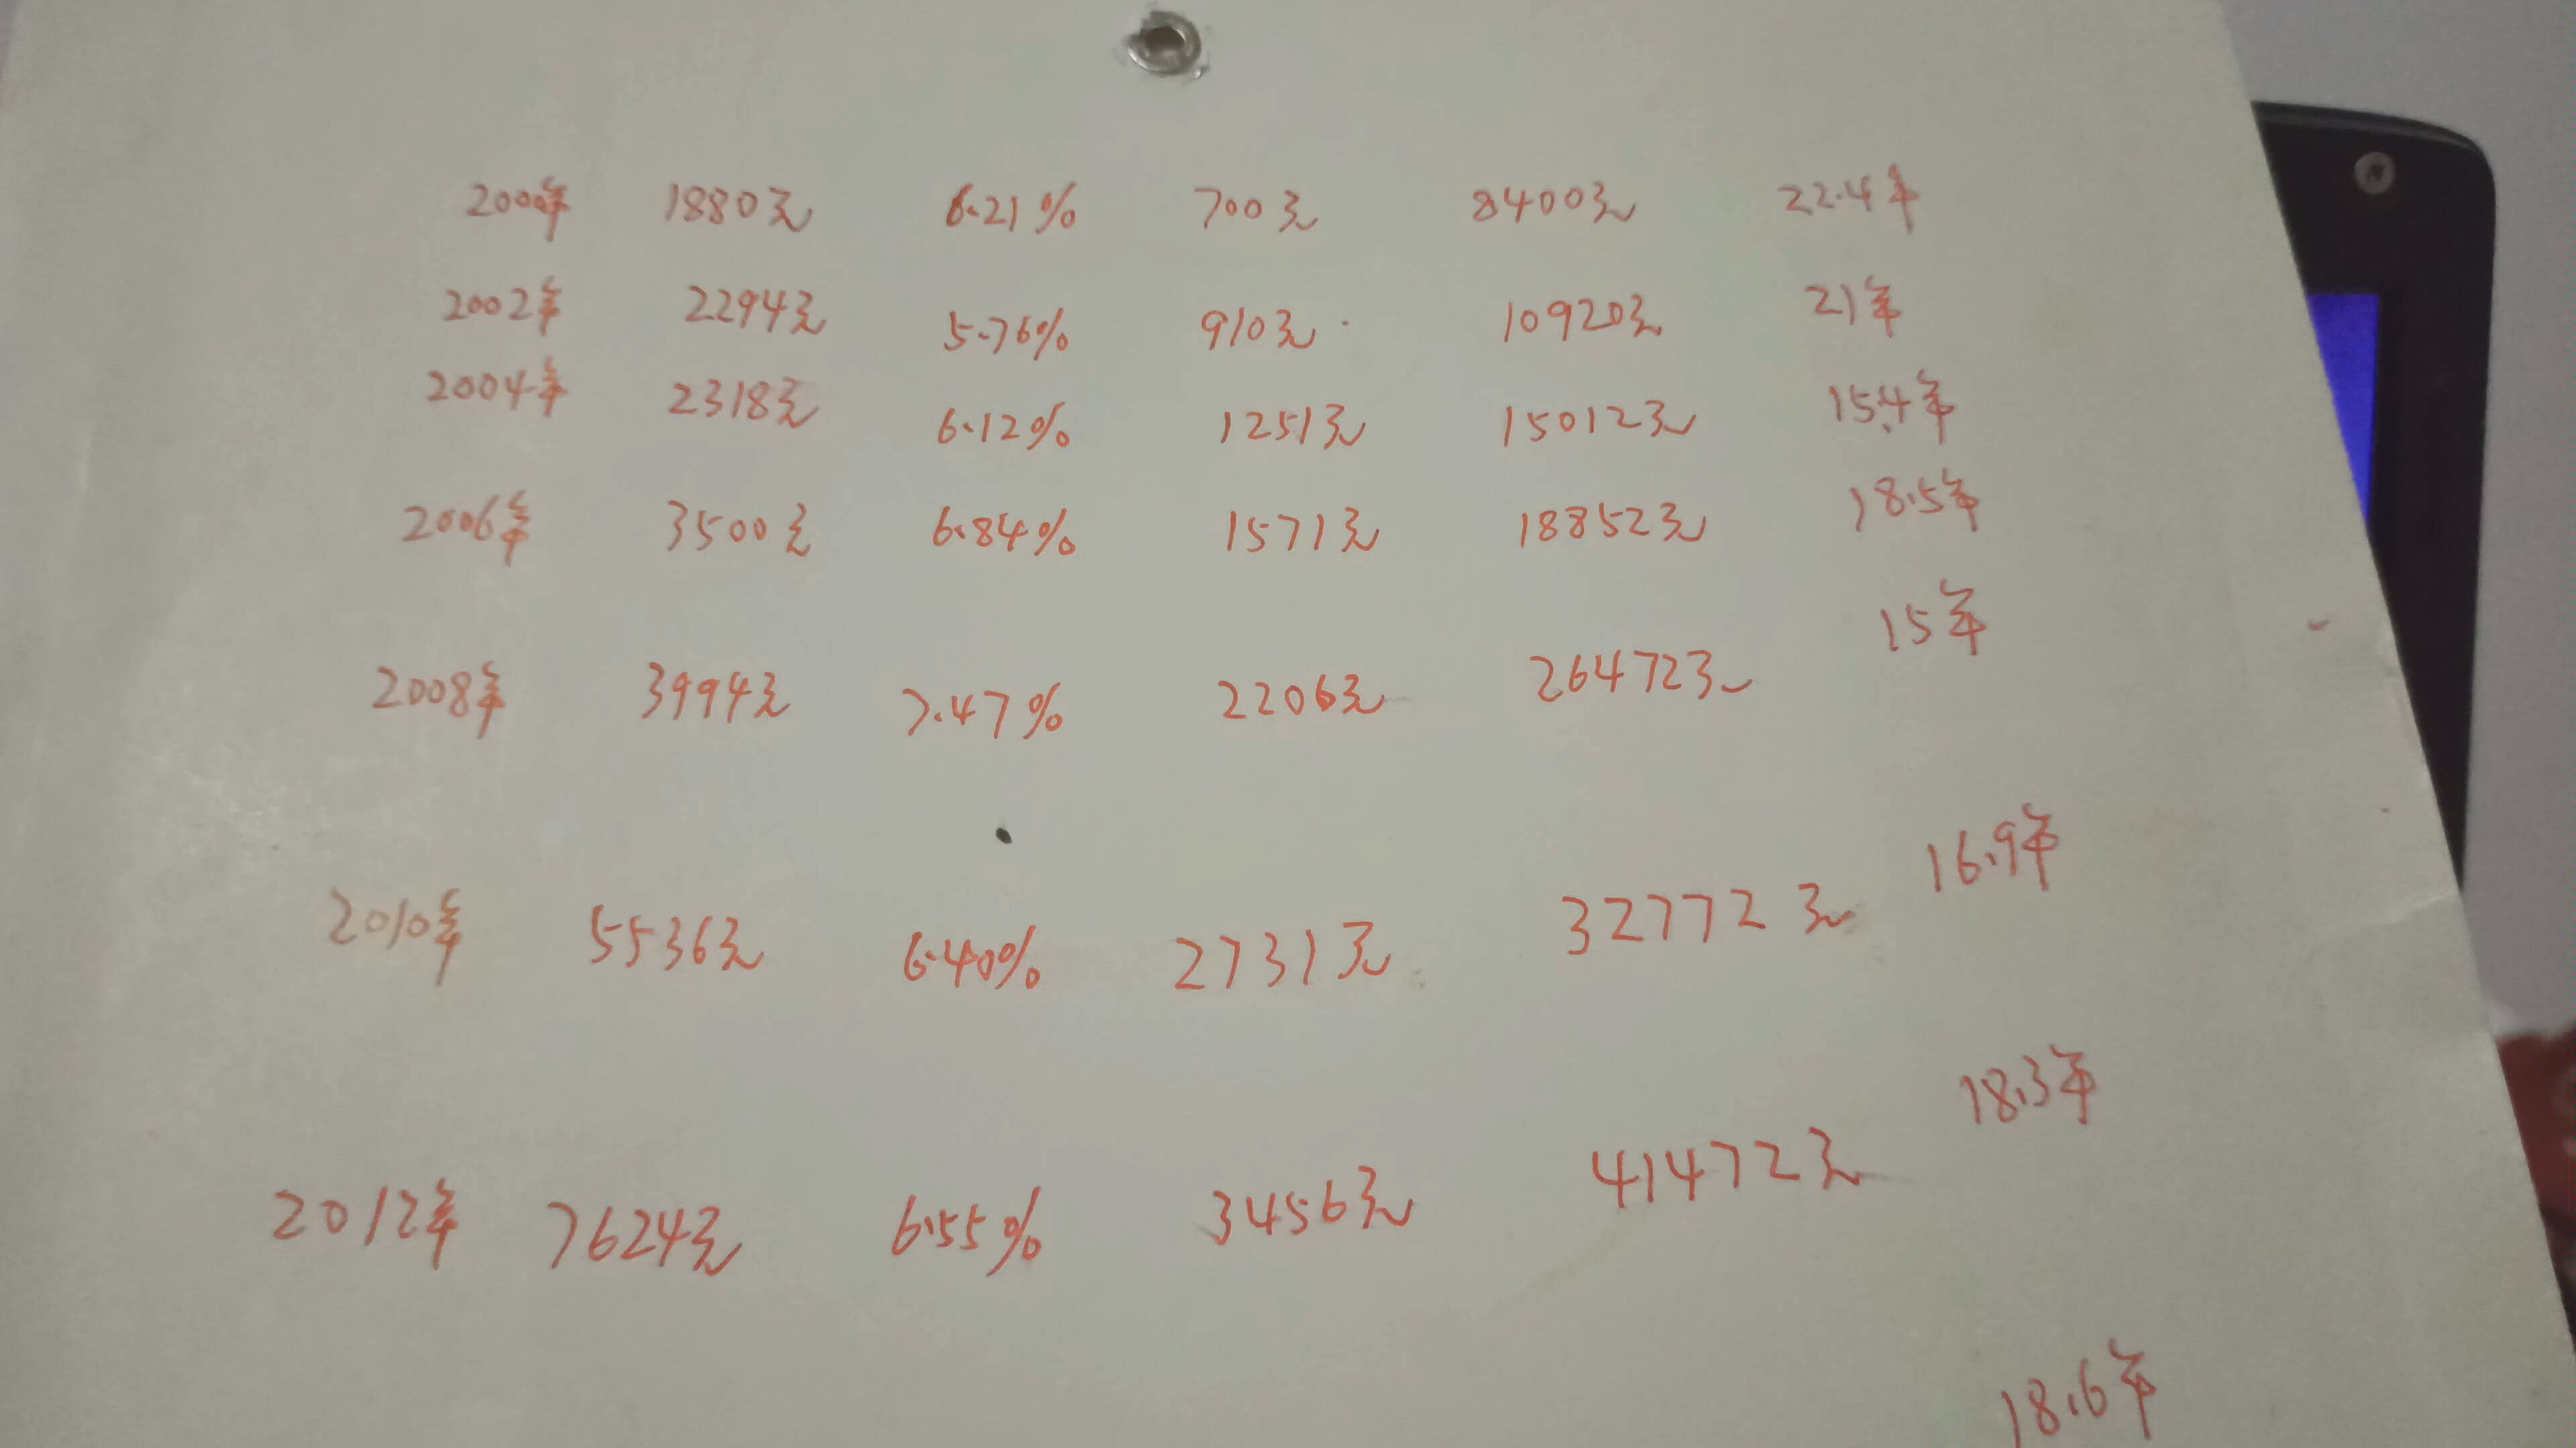 2000年 1880元 6.21% 700元 8400元 22.4年
2002年 2294元 5.76% 910元 10920元 21年
2004年 2318元 6.12% 1251元 15012元 15.4年
2006年 3500元 6.84% 1571元 18852元 18.5年
2008年 3994元 7.47% 2206元 26472元 15年
2010年 5536元 6.40% 2731元 32772元 16.9年
2012年 7624元 6.55% 3456元 41472元 18.3年
18.6年